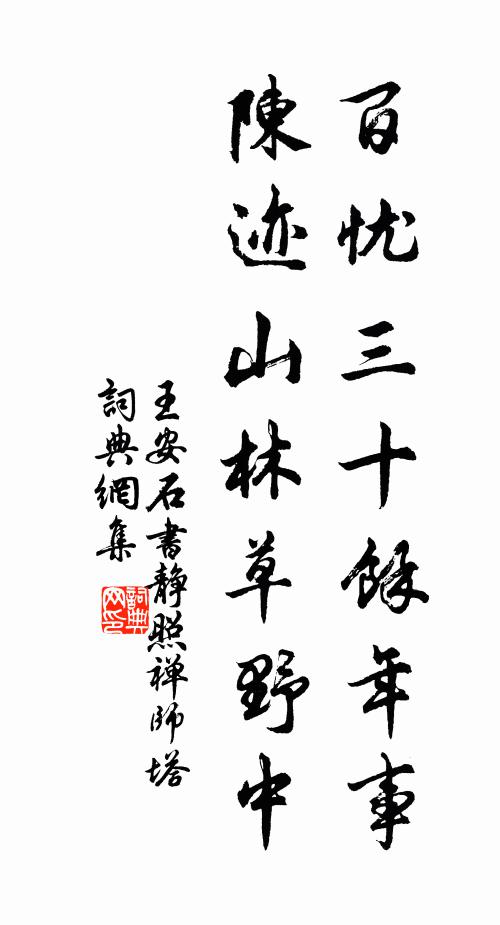 百忧三十餘年事
陳迹山林草野中
王安石書静照禅師塔
詞典網集
詞典
网印